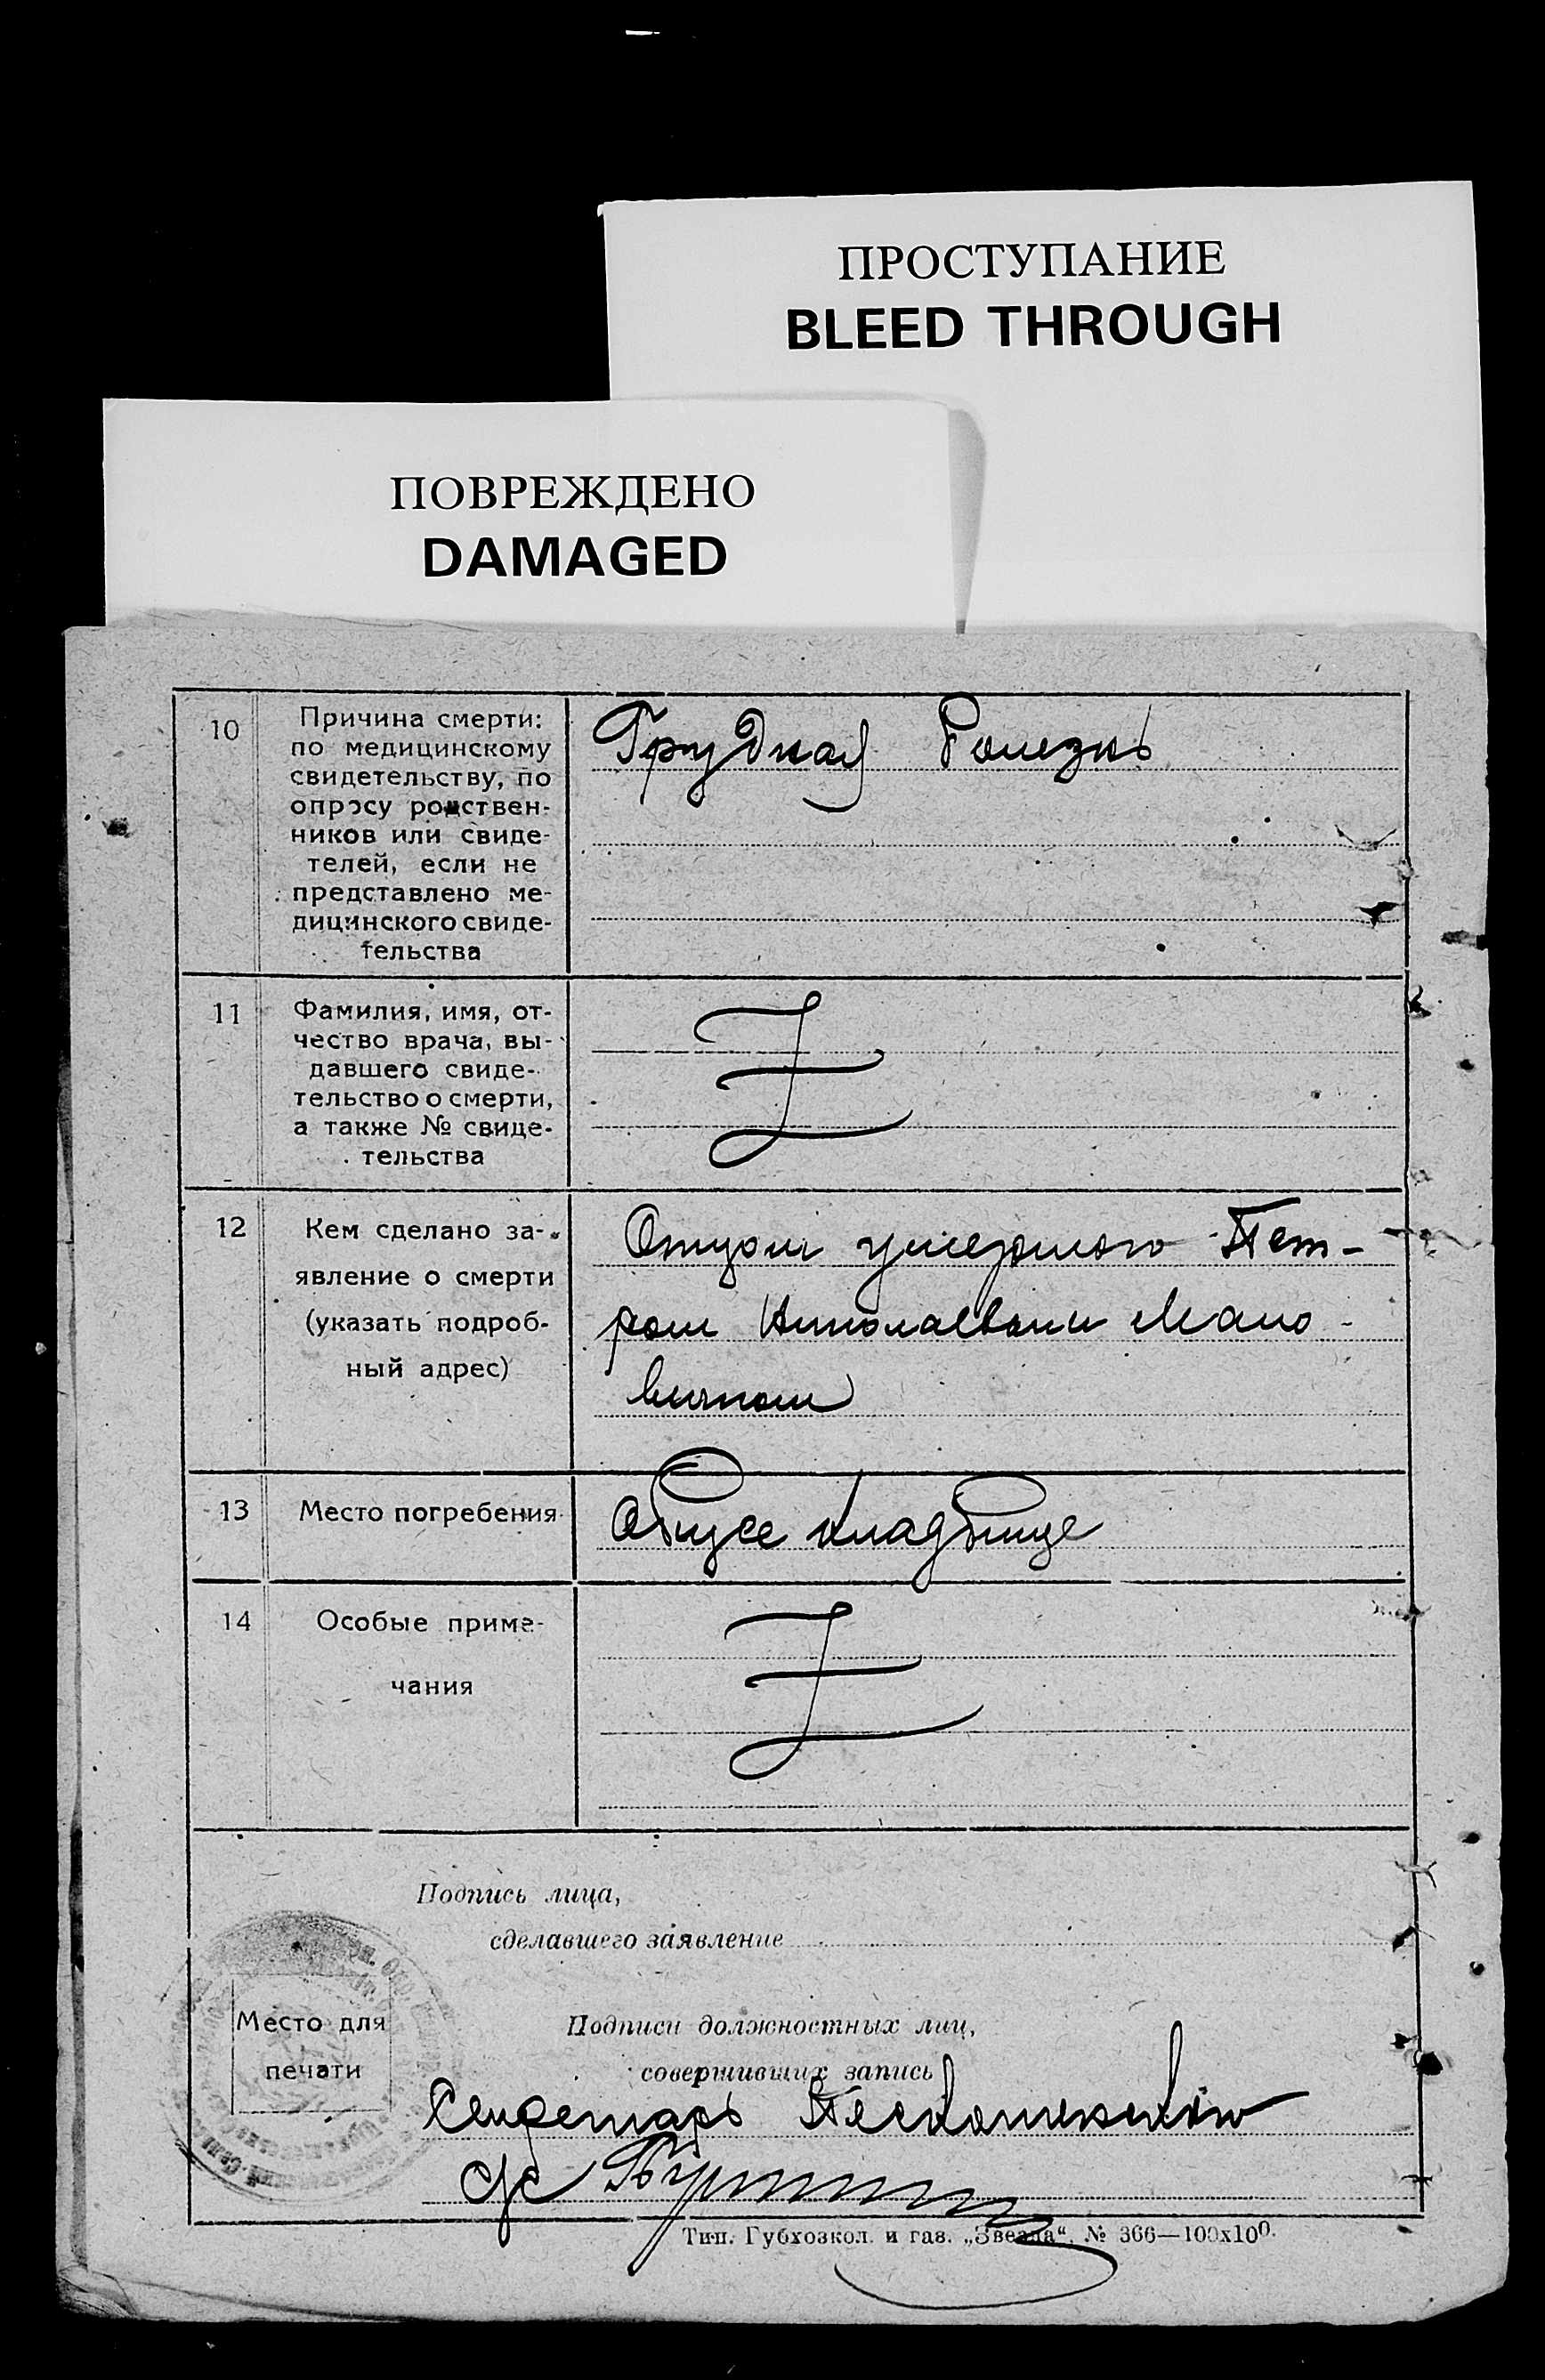 ПРОСТУПАНИЕ
BLEED THROUGH
ПОВРЕЖДЕНО
DAMAGED
10
Причина смерти:
по медицинскому
свидетельству, по
опросу родствен-
ников или свиде-
телей, если не
представлено ме-
дицинского свиде-
тельства
Грудная болезнь
11
Фамилия, имя, от-
чество врача, вы-
давшего свиде-
тельство о смерти,
а также № свиде-
тельства
12
Кем сделано за-
явление о смерти
(указать подроб-
ный адрес)
Отцом умершого Пет-
ром Николаевом Мано-
вичком
13
Место погребения
Общее кладбище
14
Особые приме-
чания
Подпись лица,
сделавшего заявление
Место для
печати
Подписи должностных лиц,
совершивших запись
Секретарь
Тип. Губхозкол. и газ. „Звезда“. № 366—100х100.